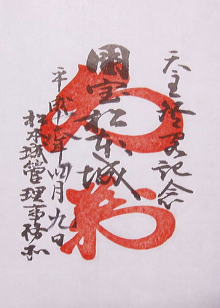 天主登閣記念
国宝松本城
平成八年四月九日
松本城管理事務所